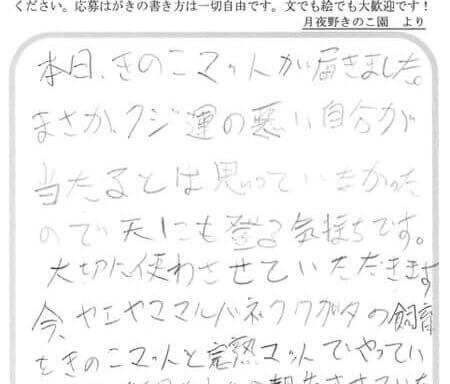 ください。応募はがきの書き方は一切自由です。文でも絵でも大歓迎です！
月夜野きのこ園　より
本日、きのこマットが届きました。
まさか、クジ運の悪い自分が
当たるとは思っていなかった
ので天にも登る気持ちです。
大切に使わさせていただきます
今、ヤエヤママルバネクワガタの飼育
をきのこマットと完熟マットでやってい